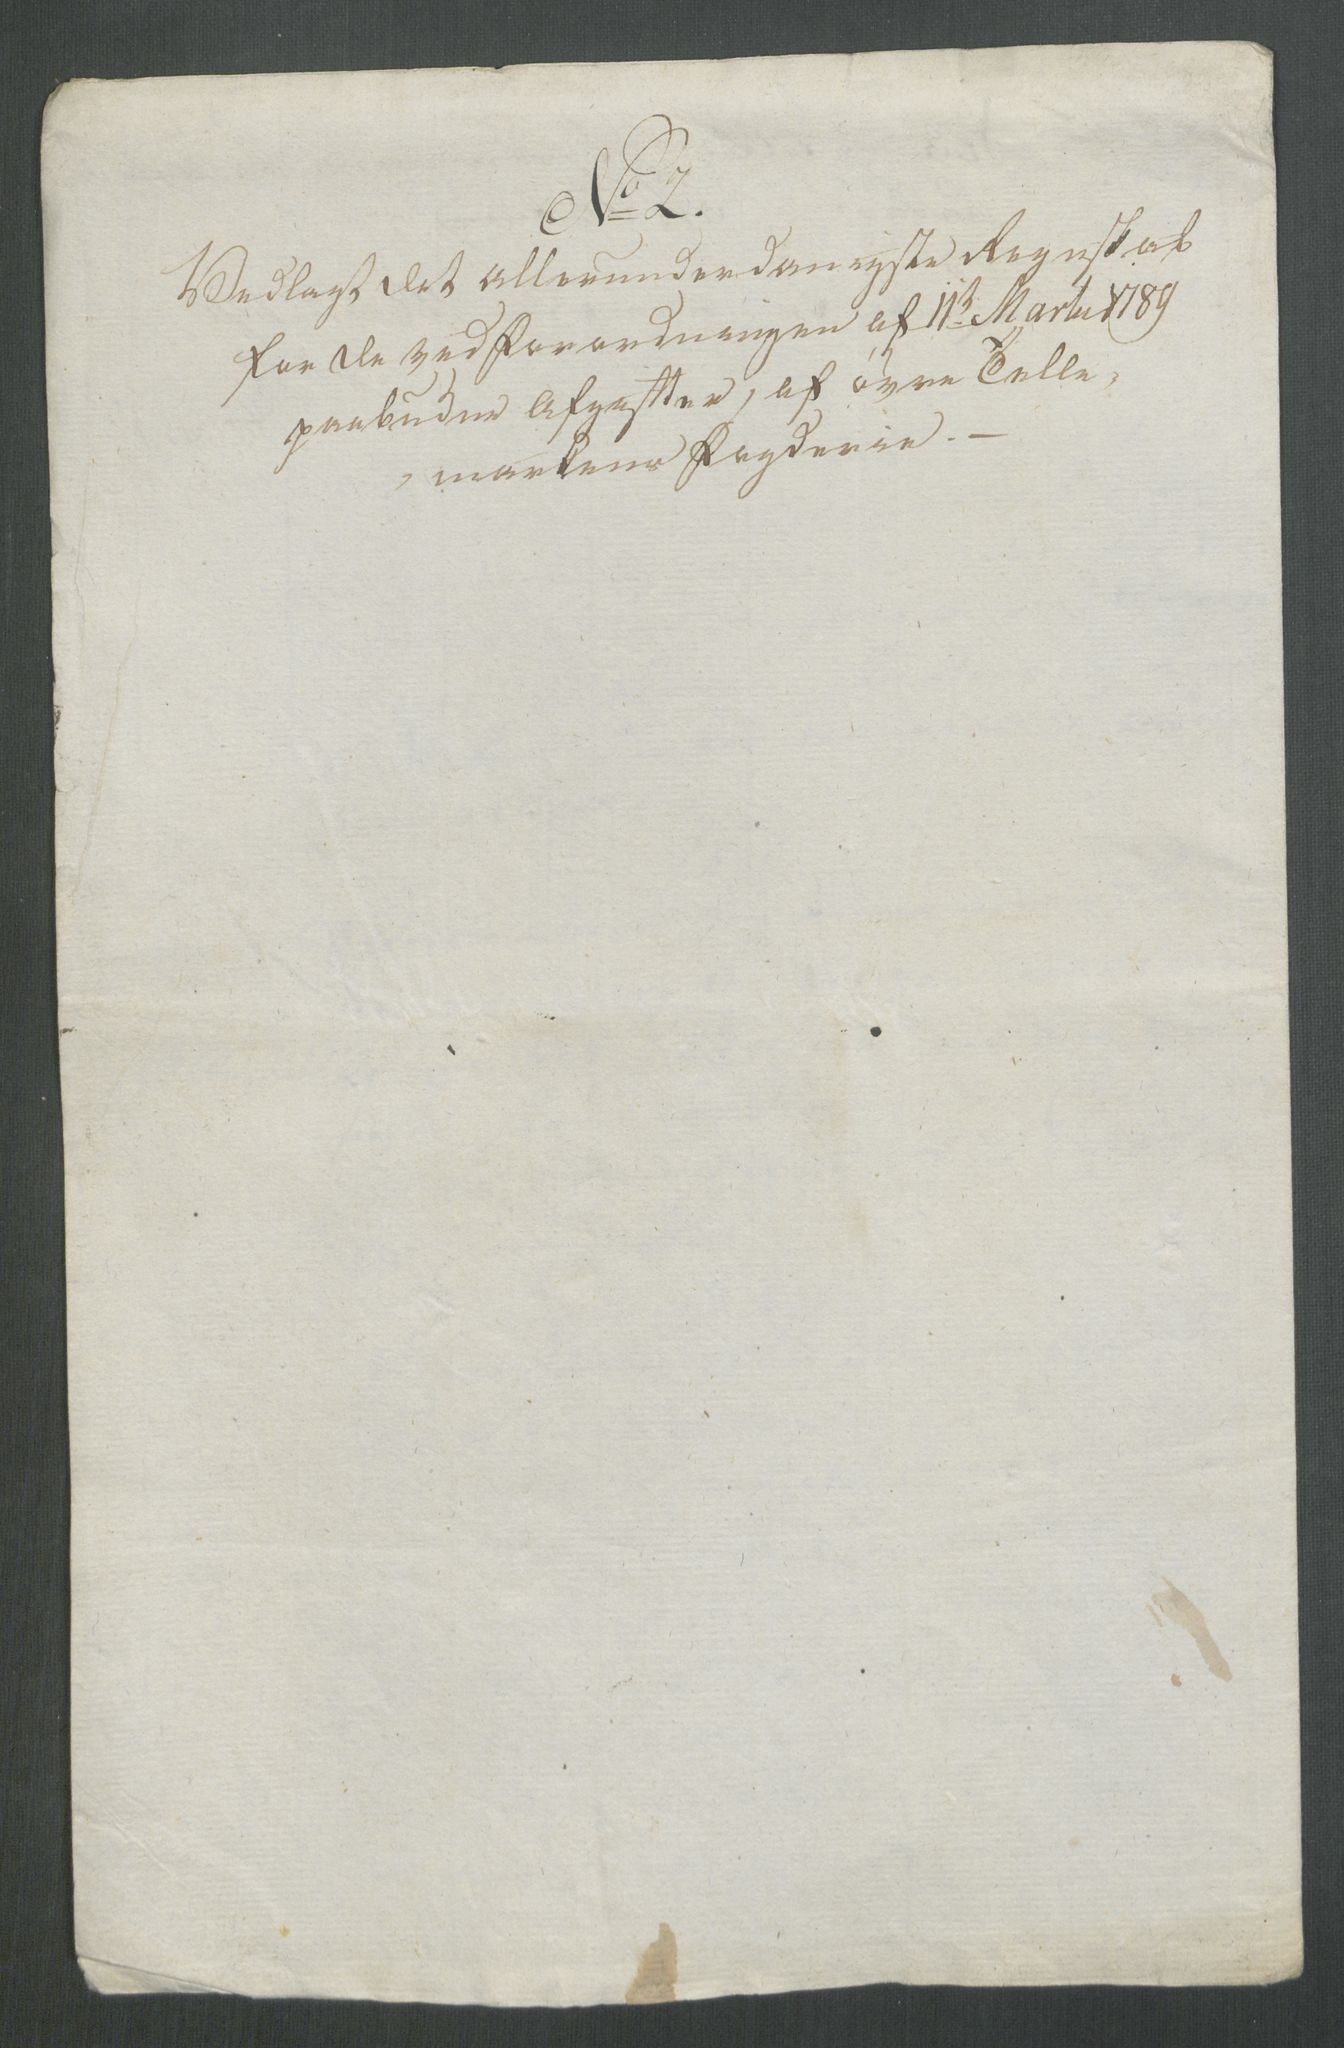 No 2.
Vedlagt det allerunderdanigste Regnskab
for de ved Forordningen af 11te Martii 1789
paabudne Afgifter, af øvre Telle,
, markens Fogderie. —